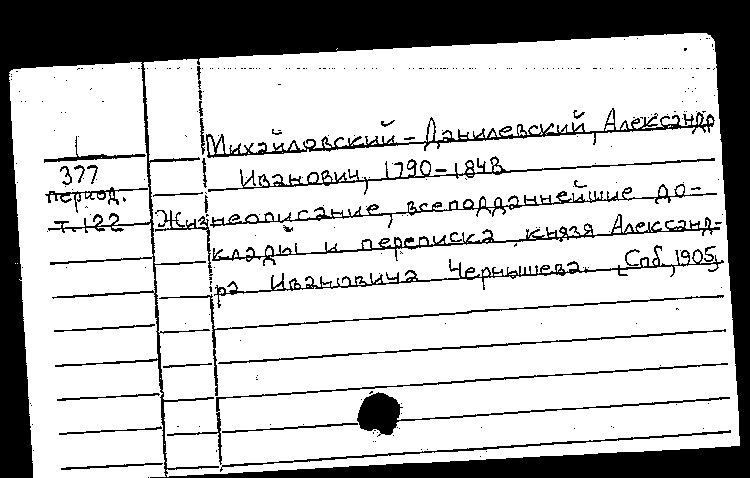 1
377
период.
т.122
Михайловский-Данилевский, Александр
Иванович, 1790-1848
Жизнеописание, всеподданнейшие до-
клады и переписка князя Александ-
ра Ивановича Чернышева. [Спб, 1905].